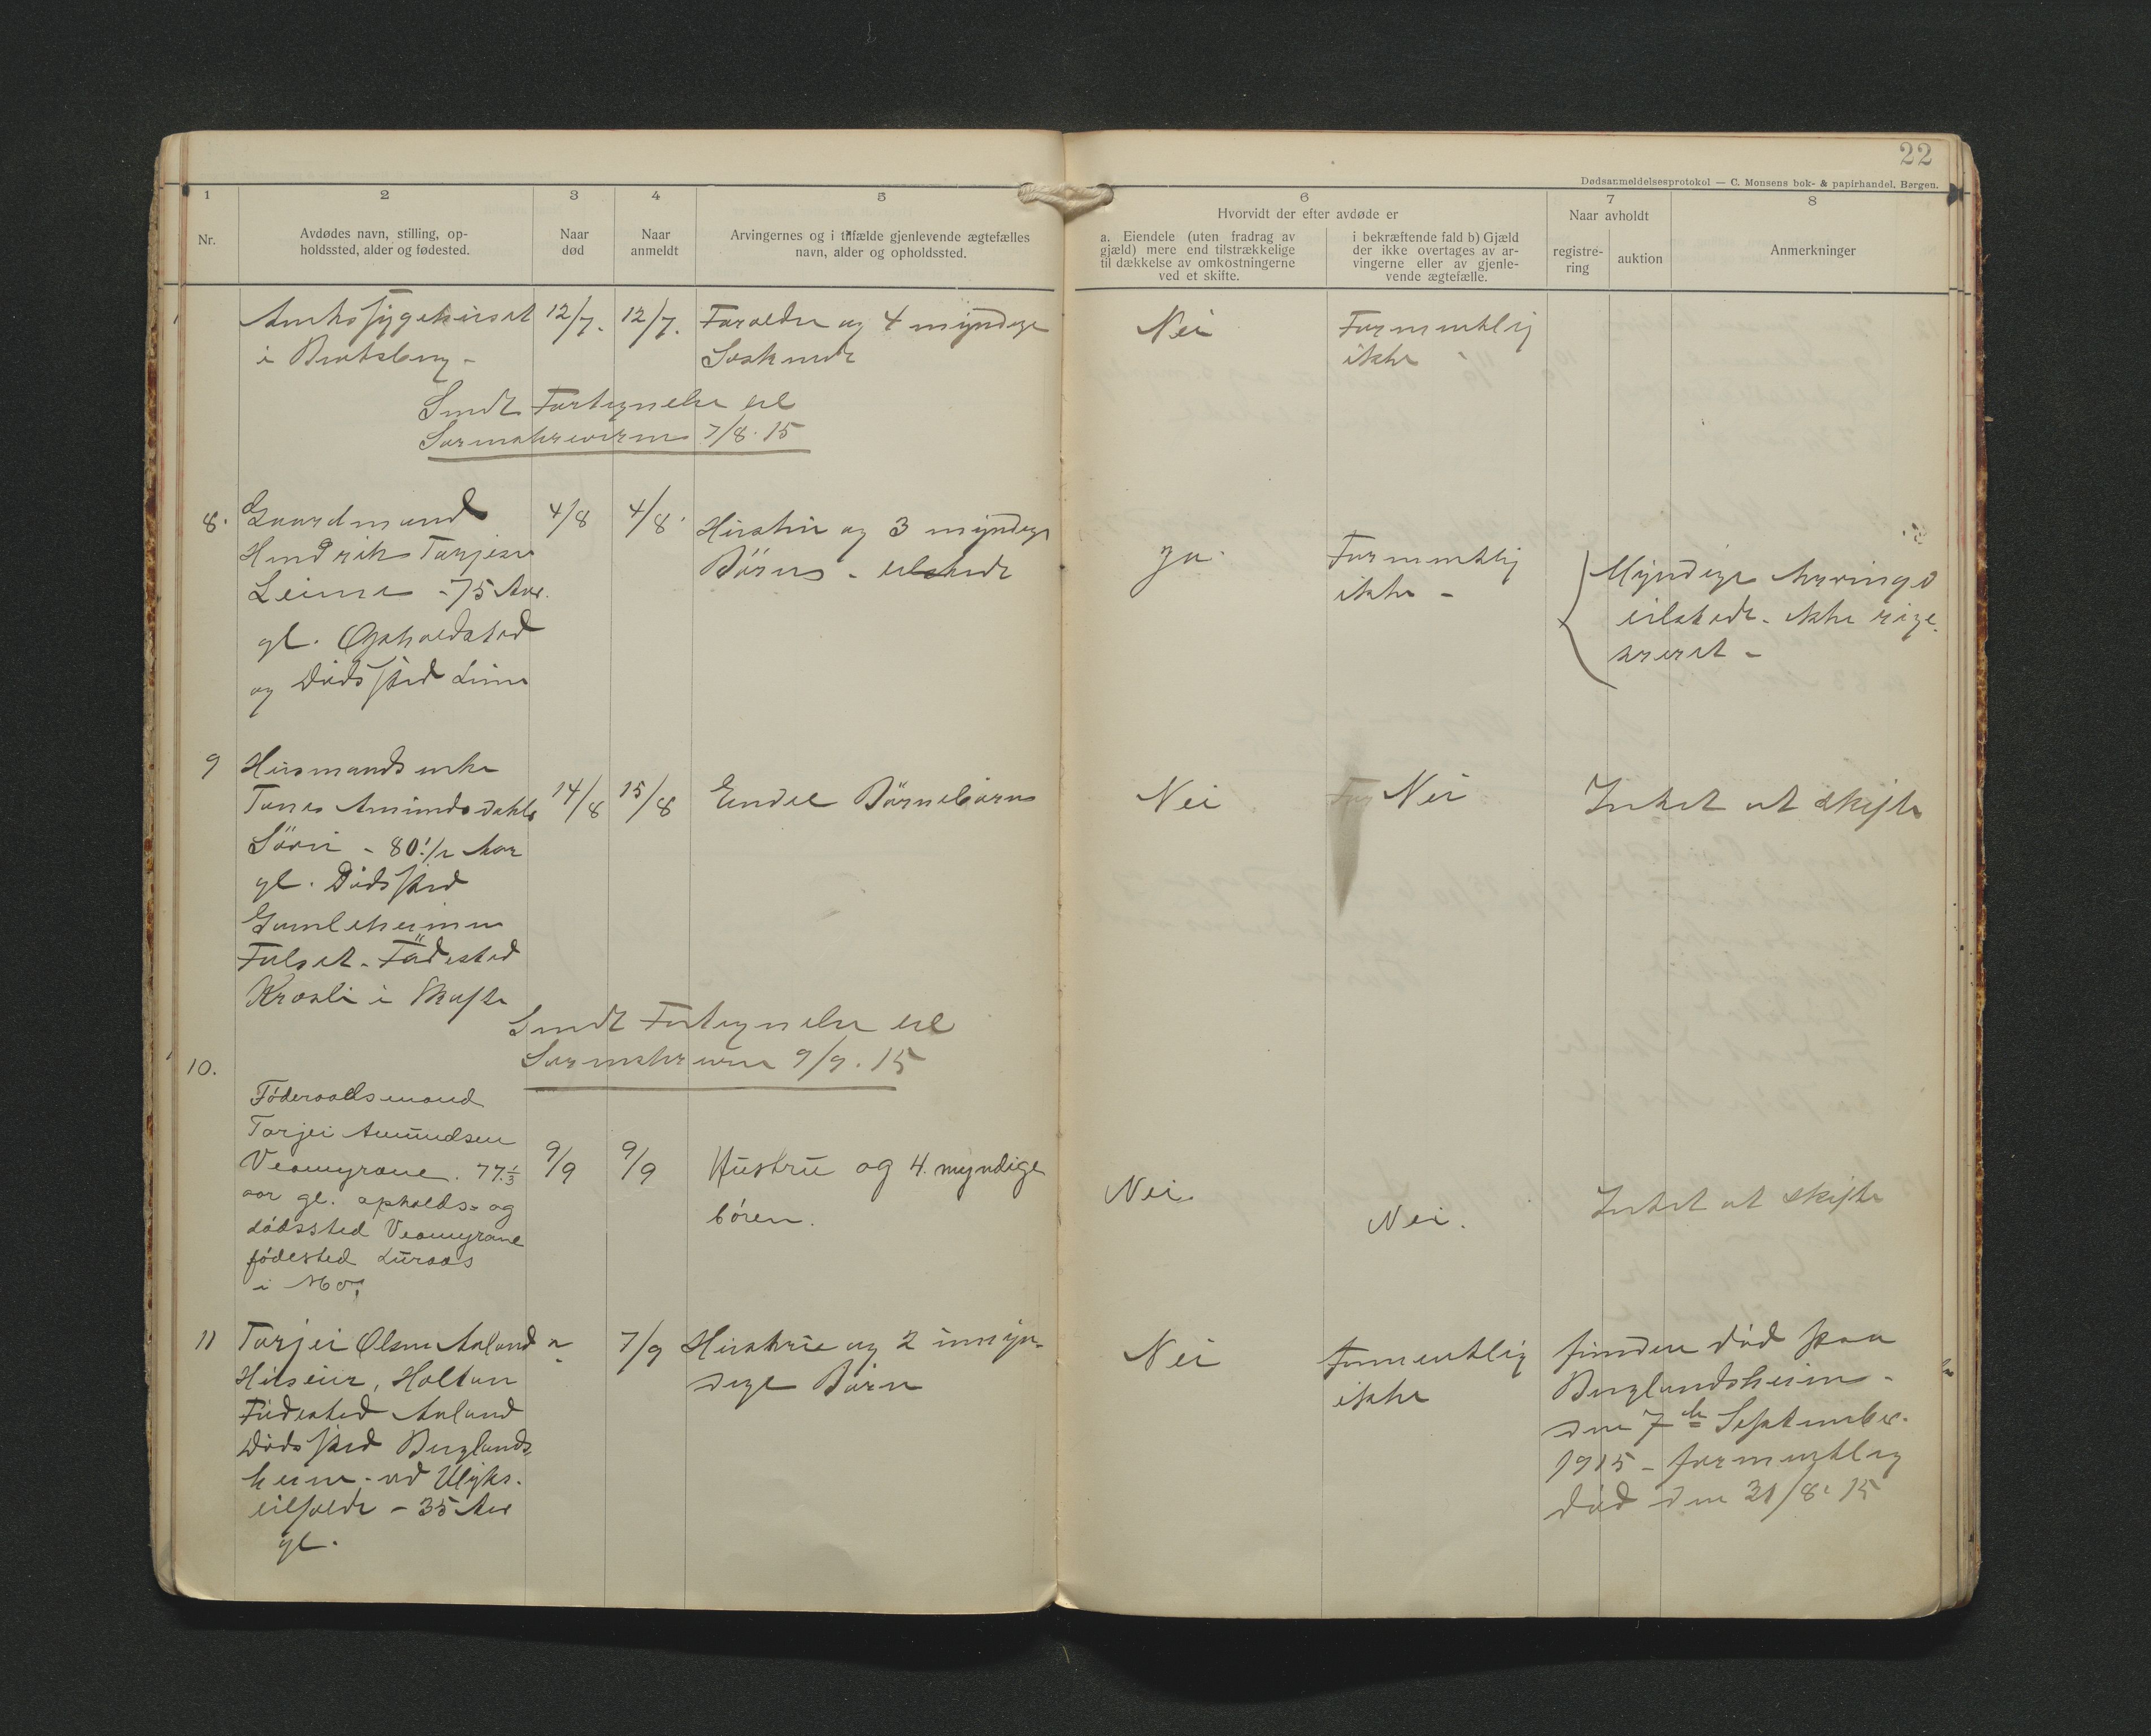 22
Dødsanmeldelsesprotokol — C. Monsens bok- & papirhandel, Bergen.
1
2
3
4
5
6
7
8
Nr.
Avdødes navn, stilling, op-
holdssted, alder og fødested.
Naar
død
Naar
anmeldt
Arvingernes og i tilfælde gjenlevende ægtefælles
navn, alder og opholdssted.
Hvorvidt der efter avdøde er
a. Eiendele (uten fradrag av
gjæld) mere end tilstrækkelige
til dækkelse av omkostningerne
ved et skifte.
i bekræftende fald b) Gjæld
der ikke overtages av ar-
vingerne eller av gjenle-
vende ægtefælle.
Naar avholdt
registre-
ring
auktion
Anmerkninger
Amtssygehuset
i Bratsberg -
12/7.
12/7.
Foreldre og 4 myndige
Søskende
Nei
Formentlig
ikke
Sendt Fortegnelse til
Sorenskriveren 7/8. 15
8.
Gaardmand
Hendrik Tarjesen
Leime - 75 Aar.
gl. Opholdsted
og Dødssted Leime
4/8
4/8
Hustru og 3 myndige
Børn - tilstede
ja.
Formentlig
ikke -
Myndige Arvinge
tilstede - ikke regi-
streret -
9
Husmandsenke
Tone Amundsdatter
- 80 1/2 Aar
gl. Dødssted
Gamleheimen
Fødested
i Skafse
14/8
15/8
Endel Børnebørn
Nei
Nei
Intet at skifte
Sendt Fortegnelse til
Sorenskriveren 9/9. 15
10.
Föderaadsmand
Tarjei Amundsen
Veamyrane. 77 1/3
aar gl. opholds- og
dödssted Veamyrane
födested Luraas
i Mo.
9/9
9/9
Hustru og 4 myndige
bören.
Nei.
Nei.
Intet at skifte
11
Tarjei Olsen Aaland
Huseier, Holtan
Fødested Aaland
Dødssted Berglands-
heim - ved Ulyks-
tilfelde - 35 Aar
gl.
7/9
Hustru og 2 umyn-
dige Børn
Nei
Formentlig
ikke
funden død paa
Berglandsheim -
den 7de September.
1915 - formentlig
død den 31/8. 15